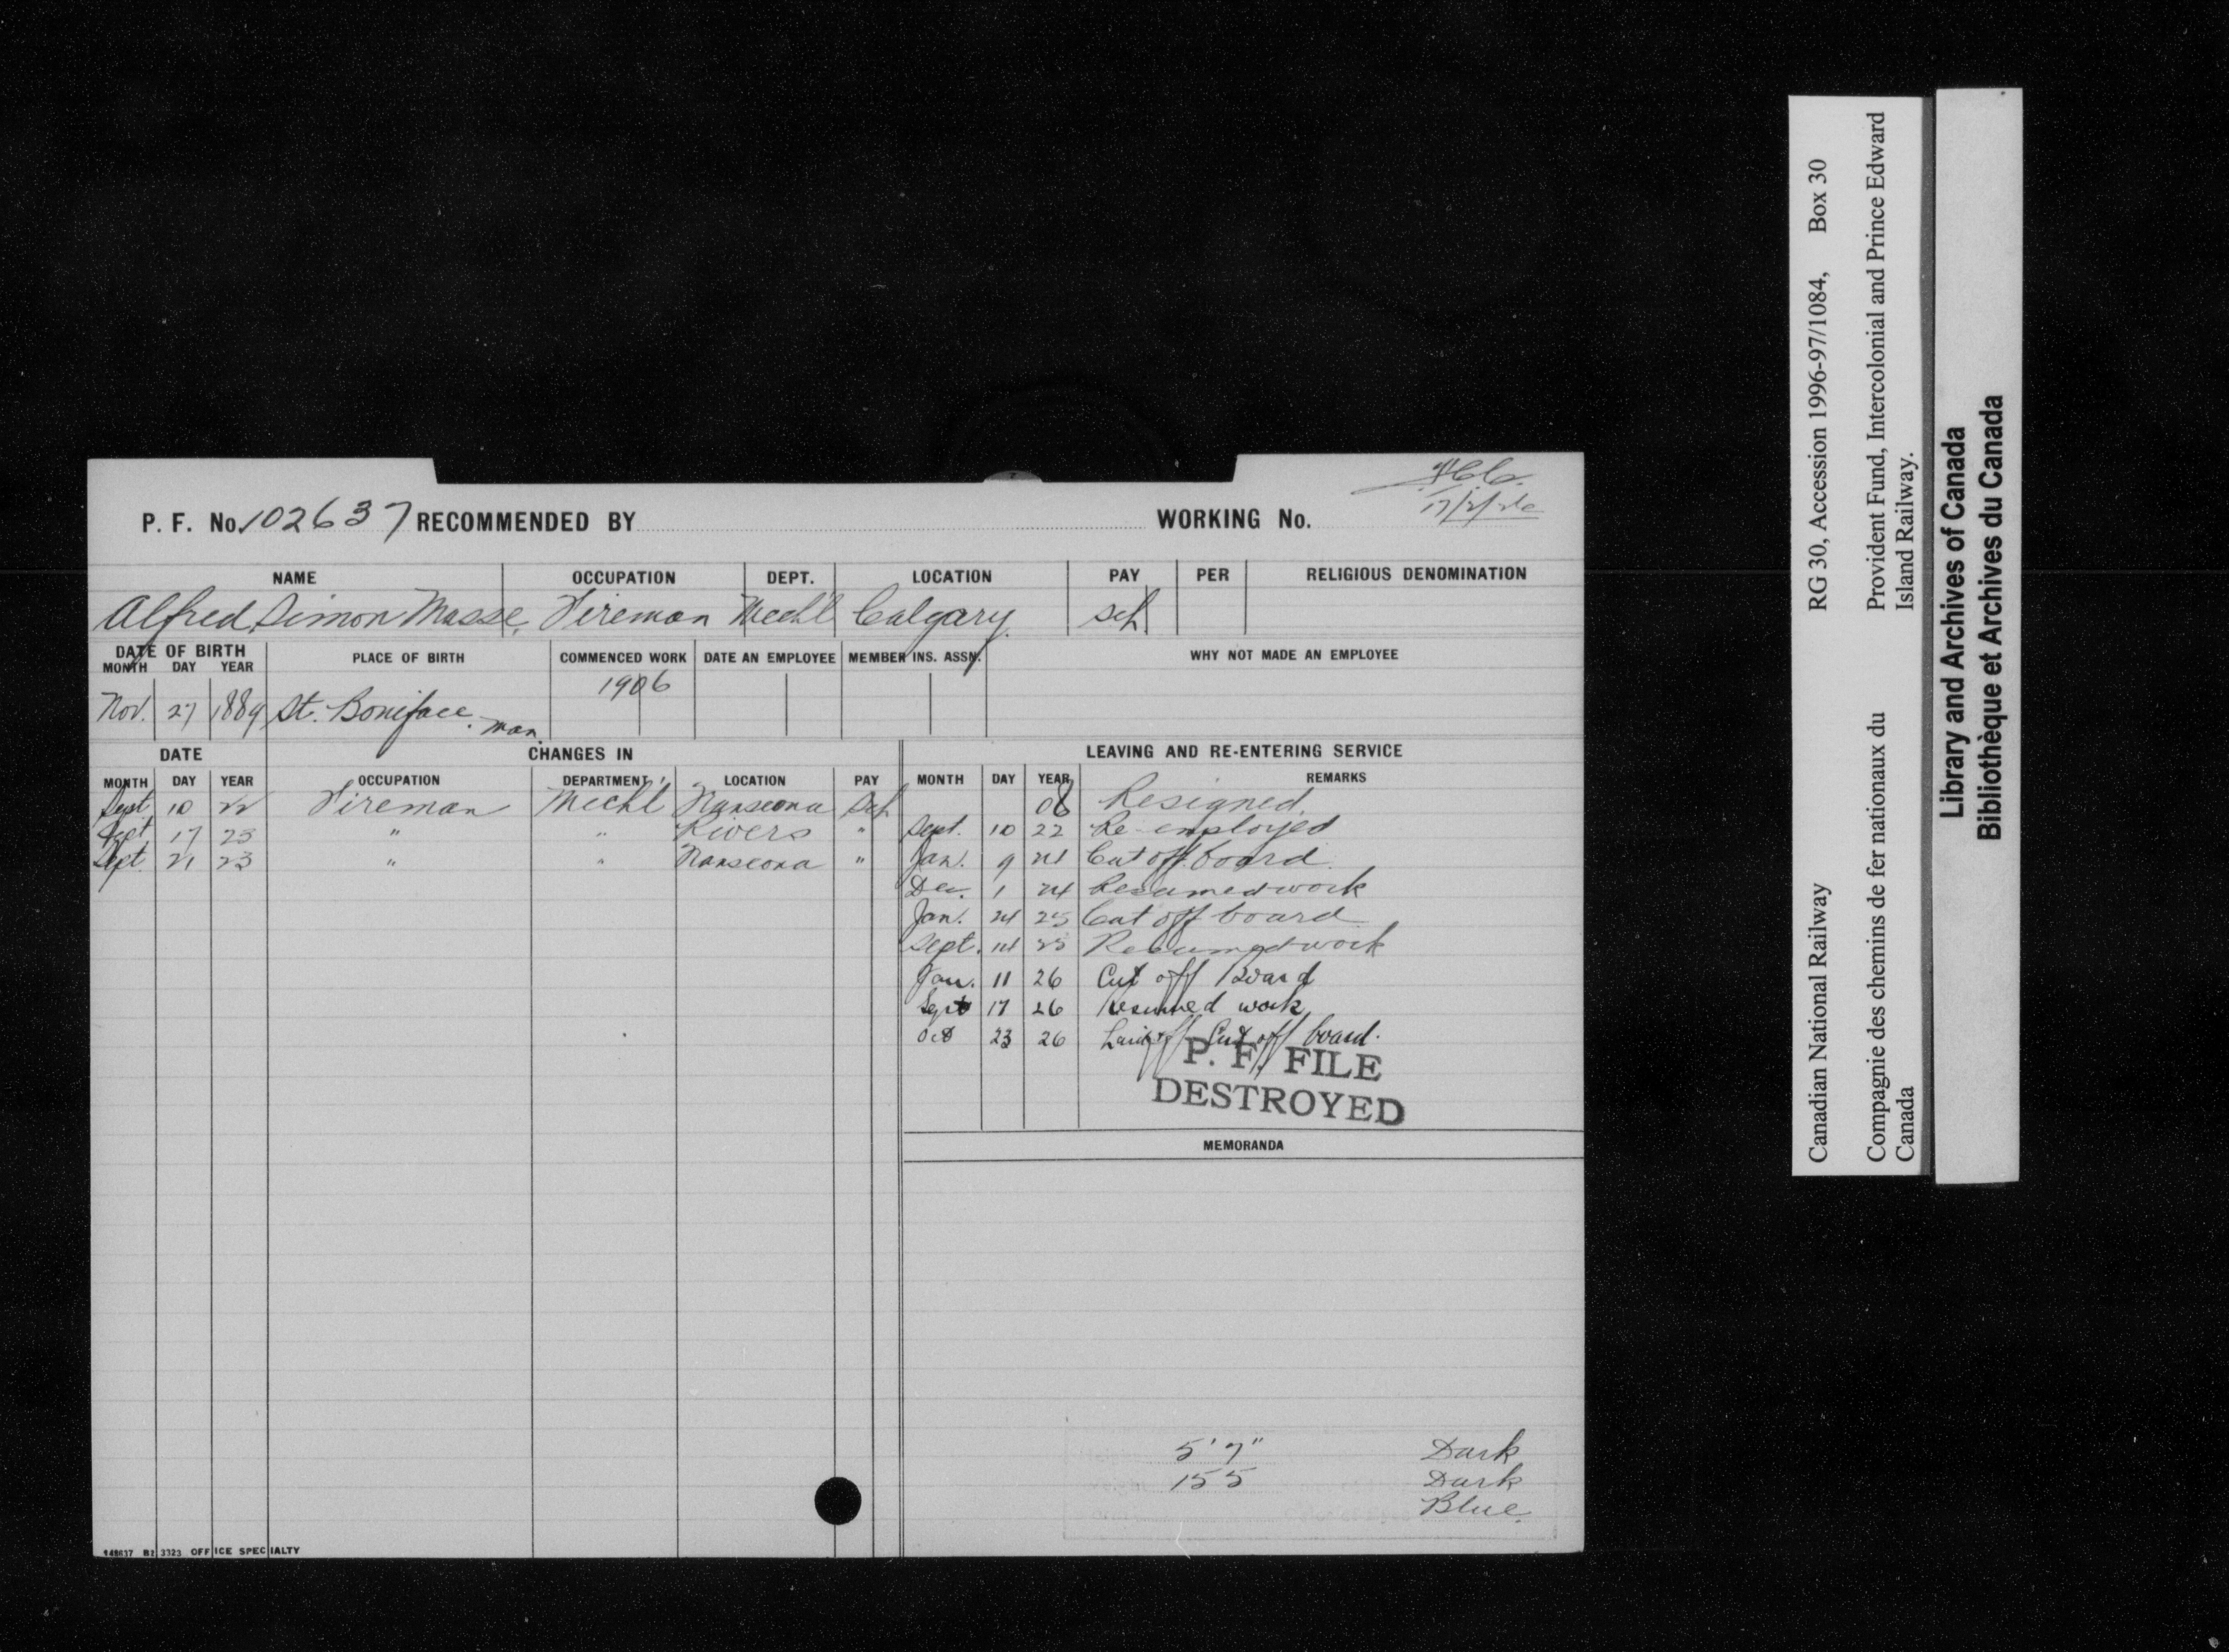 P. F. No. 102637 RECOMMENDED BY WORKING No.
17/2/26
NAME OCCUPATION DEPT. LOCATION PAY PER RELIGIOUS DENOMINATION
Alfred Simon Masse, Fireman Mech'l Calgary. Sch.
DATE OF BIRTH PLACE OF BIRTH COMMENCED WORK DATE AN EMPLOYEE MEMBER INS. ASSN. WHY NOT MADE AN EMPLOYEE
MONTH DAY YEAR
1906
Nov. 27 1889 St. Boniface. Man.
DATE CHANGES IN LEAVING AND RE-ENTERING SERVICE
MONTH DAY YEAR OCCUPATION DEPARTMENT LOCATION PAY MONTH DAY YEAR REMARKS
Sept. 10 22 Fireman Mechl Transcona Sch 08 Resigned.
Sept 17 23 " " Rivers " Sept. 10 22 Re-employed
Sept. 21 23 " " Transcona " Jan. 9 24 Cut off board.
Dec. 1 24 Resumed work
Jan. 24 25 Cut off board
Sept. 14 25 Resumed work
Jan. 11 26 Cut off Board
Sept 17 26 Resumed work
Oct 23 26 Laid off Cut off board.
P. F. FILE
DESTROYED
MEMORANDA
5'7" Dark
155 Dark
Blue.
3323 OFFICE SPECIALTY
Canadian National Railway RG 30, Accession 1996-97/1084, Box 30
Compagnie des chemins de fer nationaux du Provident Fund, Intercolonial and Prince Edward
Canada Island Railway.
Library and Archives of Canada
Bibliothèque et Archives du Canada